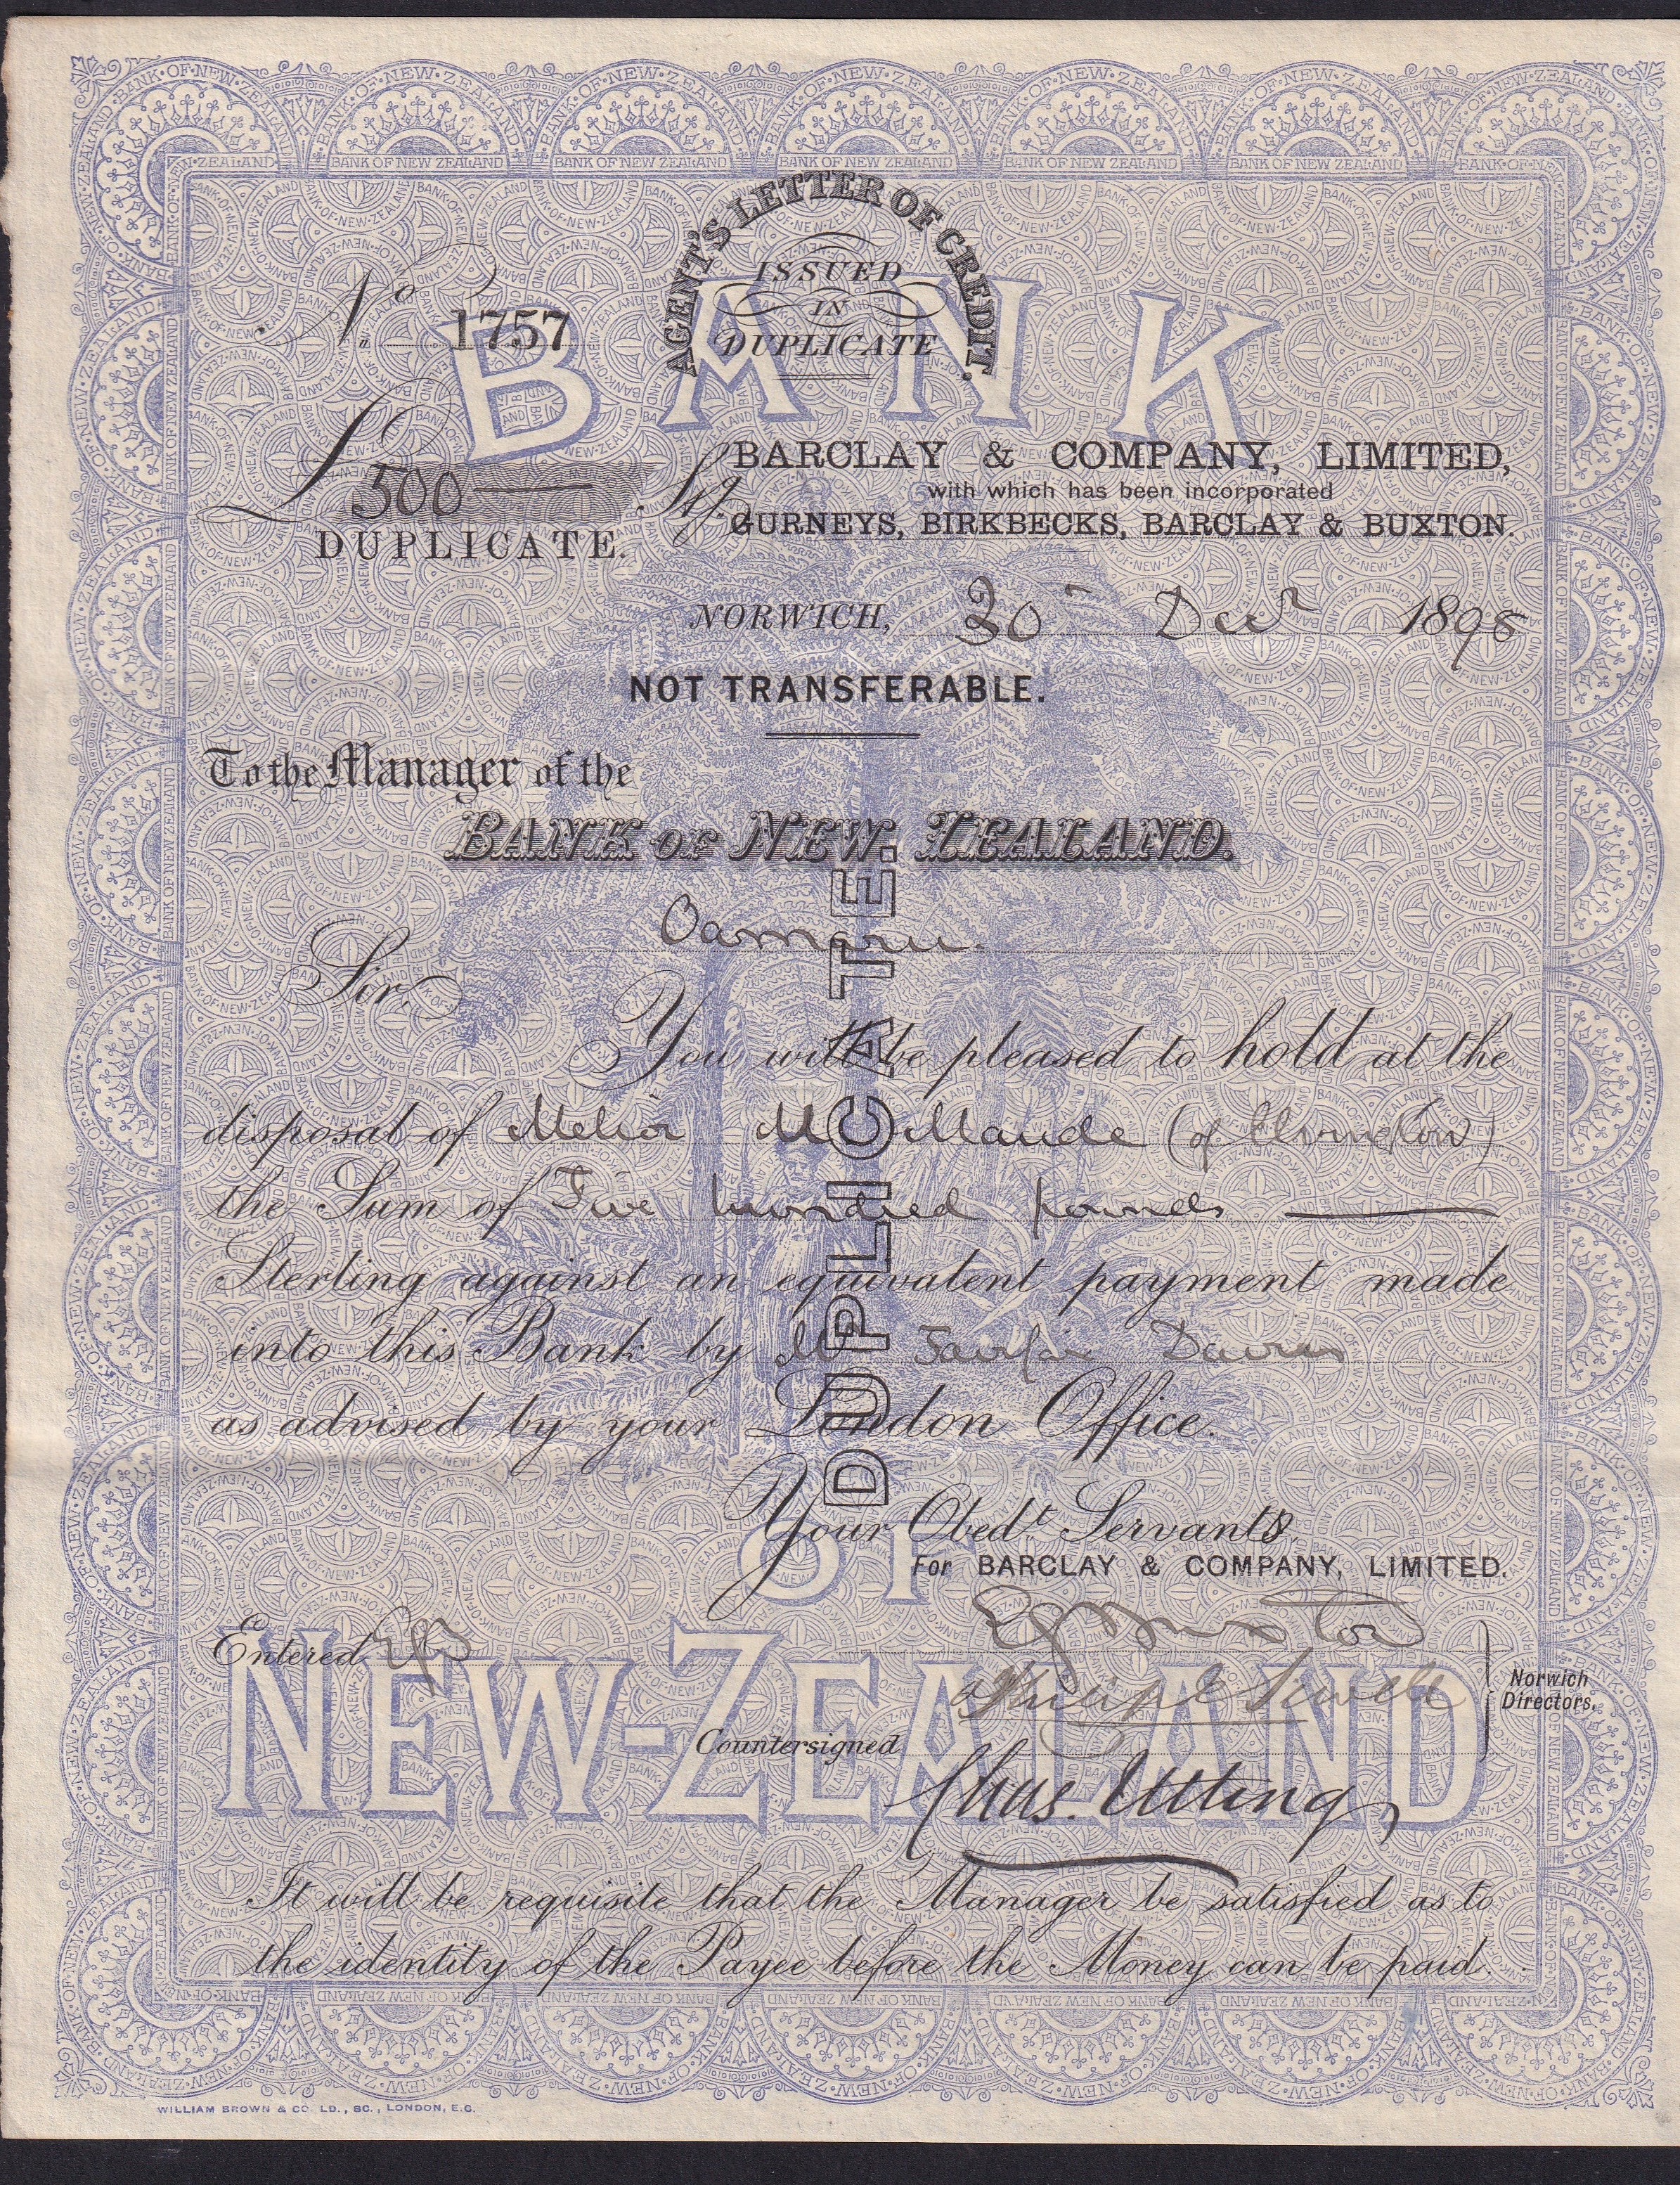 AGENT'S LETTER OF CREDIT.
ISSUED
IN
DUPLICATE
No 1757
BANK
£500 Stg.
DUPLICATE.
BARCLAY & COMPANY, LIMITED,
with which has been incorporated
GURNEYS, BIRKBECKS, BARCLAY & BUXTON.
NORWICH, Decr 1898
NOT TRANSFERABLE.
To the Manager of the
BANK OF NEW ZEALAND.
Oamaru.
Sir
You will be pleased to hold at the
disposal of Maude (of
the Sum of Five hundred pounds
Sterling against an equivalent payment made
into this Bank by Mr Davies
as advised by your London Office.
DUPLICATE.
Your Obedt Servants,
OF
For BARCLAY & COMPANY, LIMITED.
Entered
NEW-ZEALAND
Norwich
Directors.
Countersigned
Chas. Utting
It will be requisite that the Manager be satisfied as to
the identity of the Payee before the Money can be paid.
WILLIAM BROWN & CO. LD., SC., LONDON, E.C.